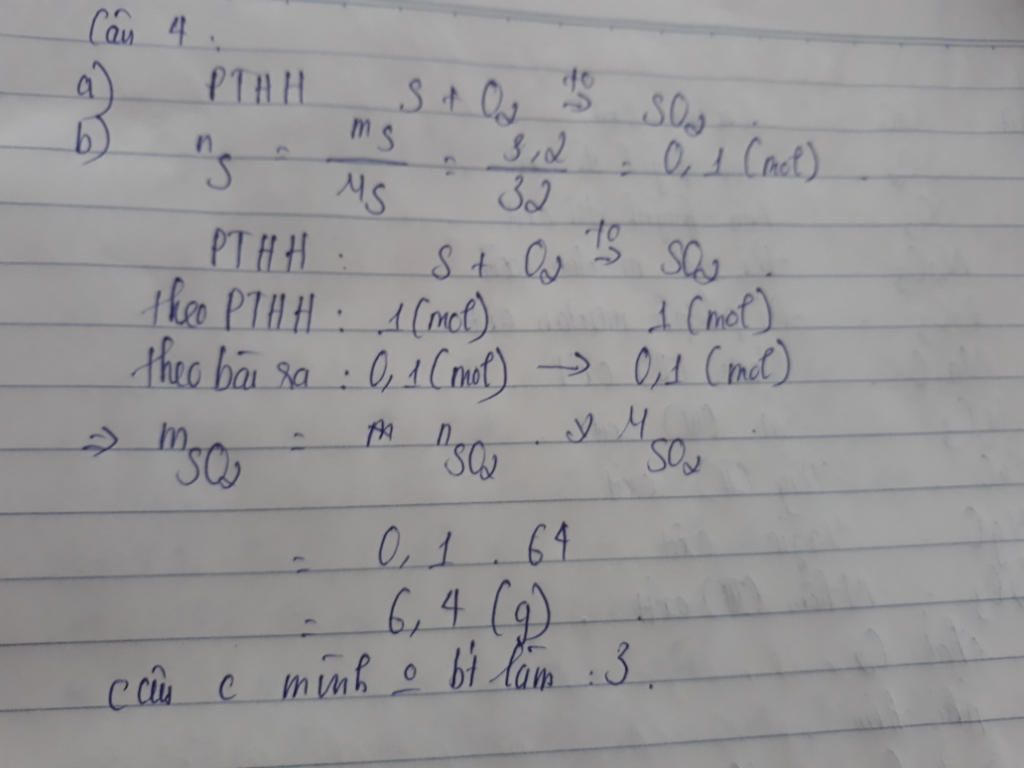 Câu 4 :
a) PTHH S + O₂ t⁰→ SO₂ .
b) nS = mS / MS = 3,2 / 32 = 0,1 (mol) .
PTHH : S + O₂ t⁰→ SO₂ .
theo PTHH : 1 (mol) 1 (mol)
theo bài ra : 0,1 (mol) → 0,1 (mol)
⇒ mSO₂ = nSO₂ . MSO₂
= 0,1 . 64
= 6,4 (g)
câu c mình o bít làm :3 .